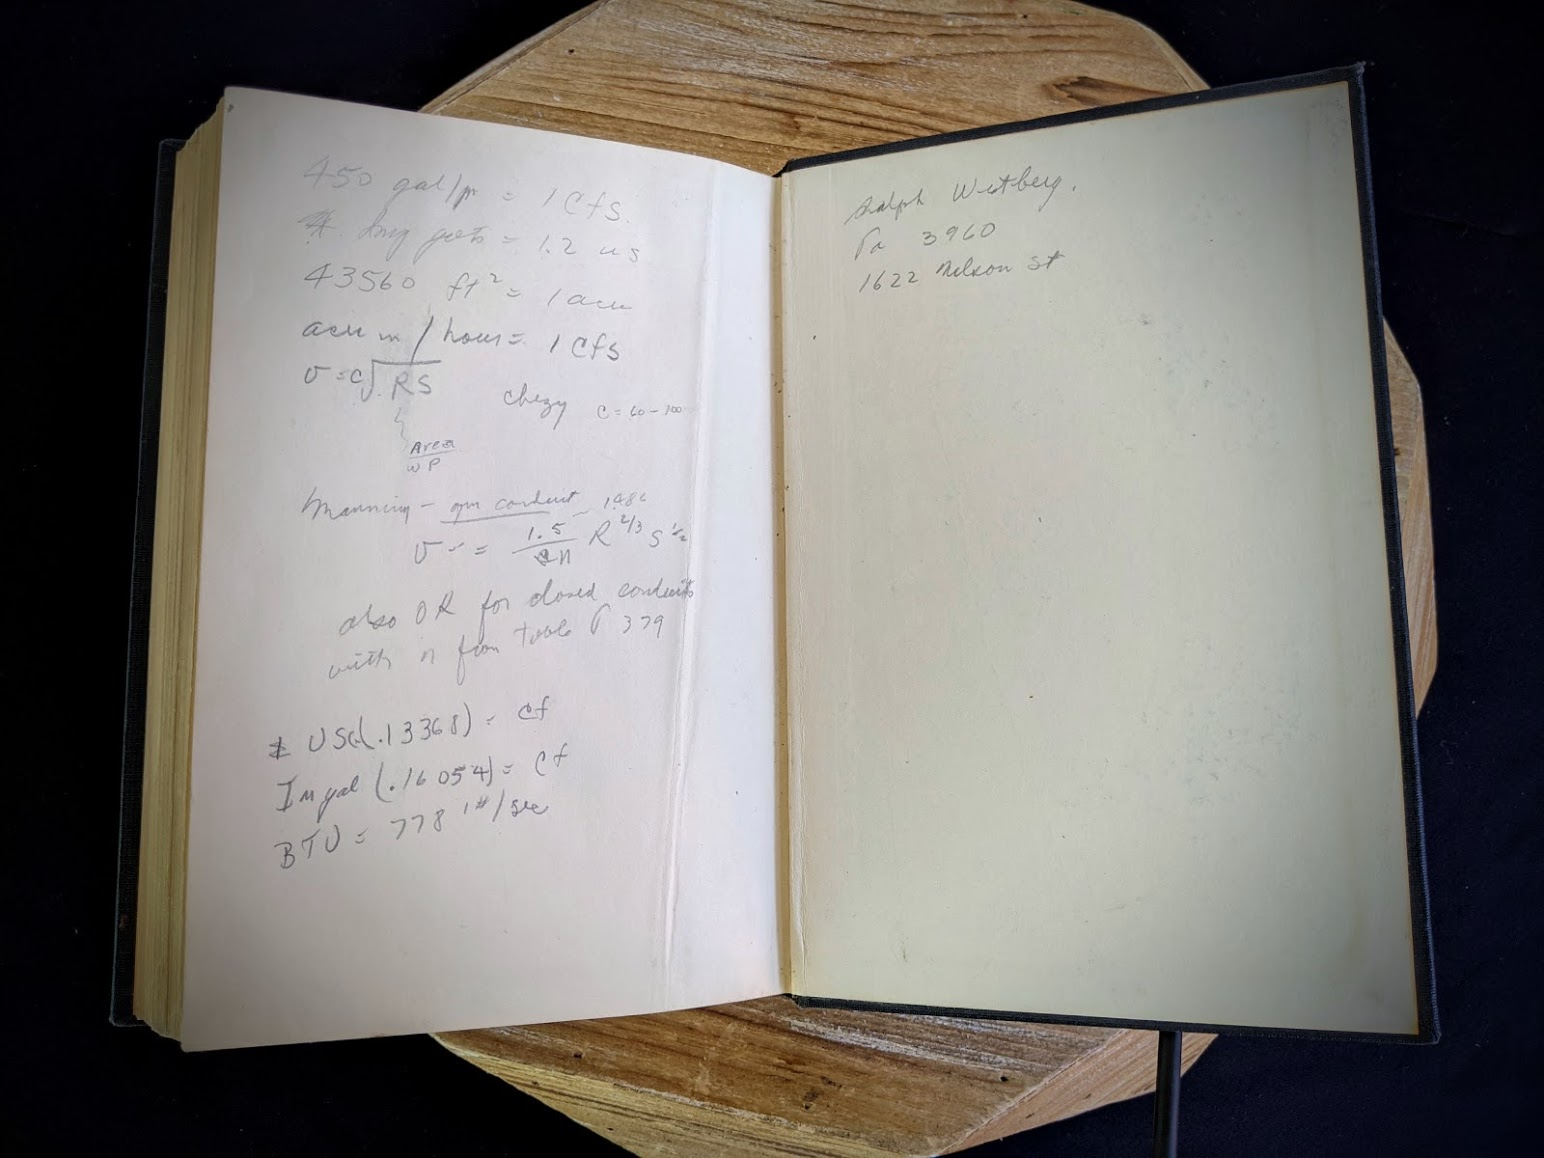 450 gal/m = 1 Cfs.
Img gals = 1.2 us
43560 ft² = 1 acre
acre in / hour = 1 Cfs
v = c√RS
chezy c = 60-100
Area
WP
Manning - open conduit - 1.486
v = 1.5/n R^2/3 S^1/2
also OK for closed conduits
with n from table P 379
USG(.13368) = cf
Im gal (.16054) = cf
BTU = 778 '#/sec
Ralph Westberg.
Pa 3960
1622 Nelson St